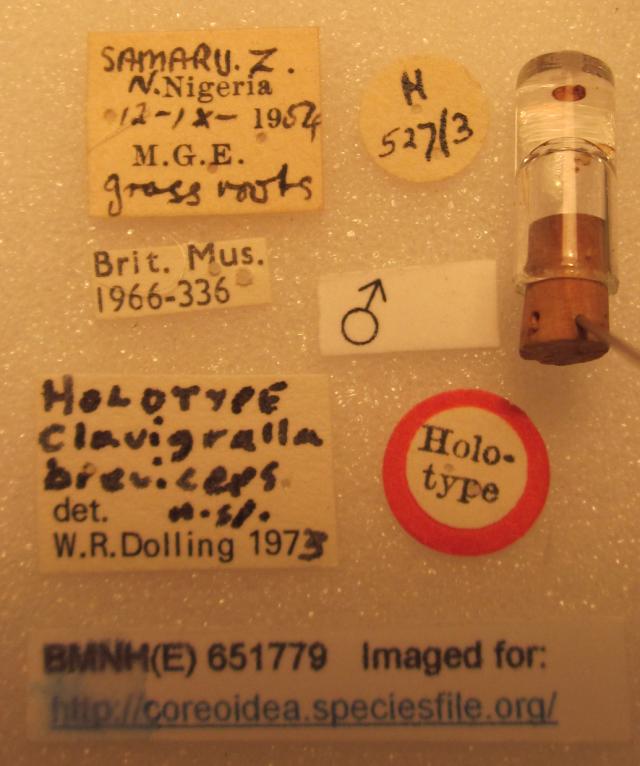 SAMARU. Z.
N. Nigeria
12-IX- 1954
M.G.E.
grass roots
N
527/3
Brit. Mus.
1966-336
♂
HOLOTYPE
Clavigralla
breviceps
det. n.sp.
W.R.Dolling 1973
Holo-
type
BMNH(E) 651779 Imaged for:
http://coreoidea.speciesfile.org/